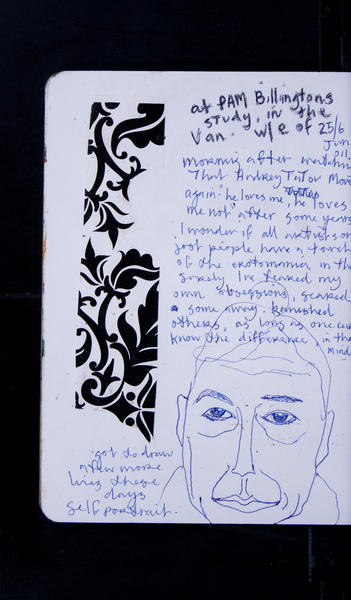 at PAM Billingtons
study, in the
Van. w/e of 25/6
June
011
morning after watching
That Audrey Tatou Movie
again "he loves me, he loves
me not" after some years
I wonder if all artists or
just people have a touch
of the erotomania in the
surely I've feared my
own obsessions, scared
some away, banished
others, as long as one can
know the difference, in the
mind
got to draw
a few more
lines these
days
self portrait.